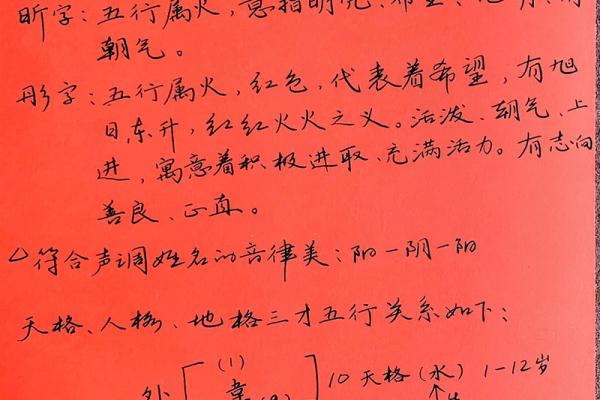 昕字：五行属火，意指明亮、希望、
朝气。
彤字：五行属火，红色，代表着希望，有旭
日东升，红红火火之义。活泼、朝气、上
进，寓意着积极进取、充满活力。有志向
善良、正直。
△符合声调姓名的音律美：阳一阴一阳
天格、人格、地格三才五行关系如下：
(1)
外[ ]10 天格(水) 1-12岁